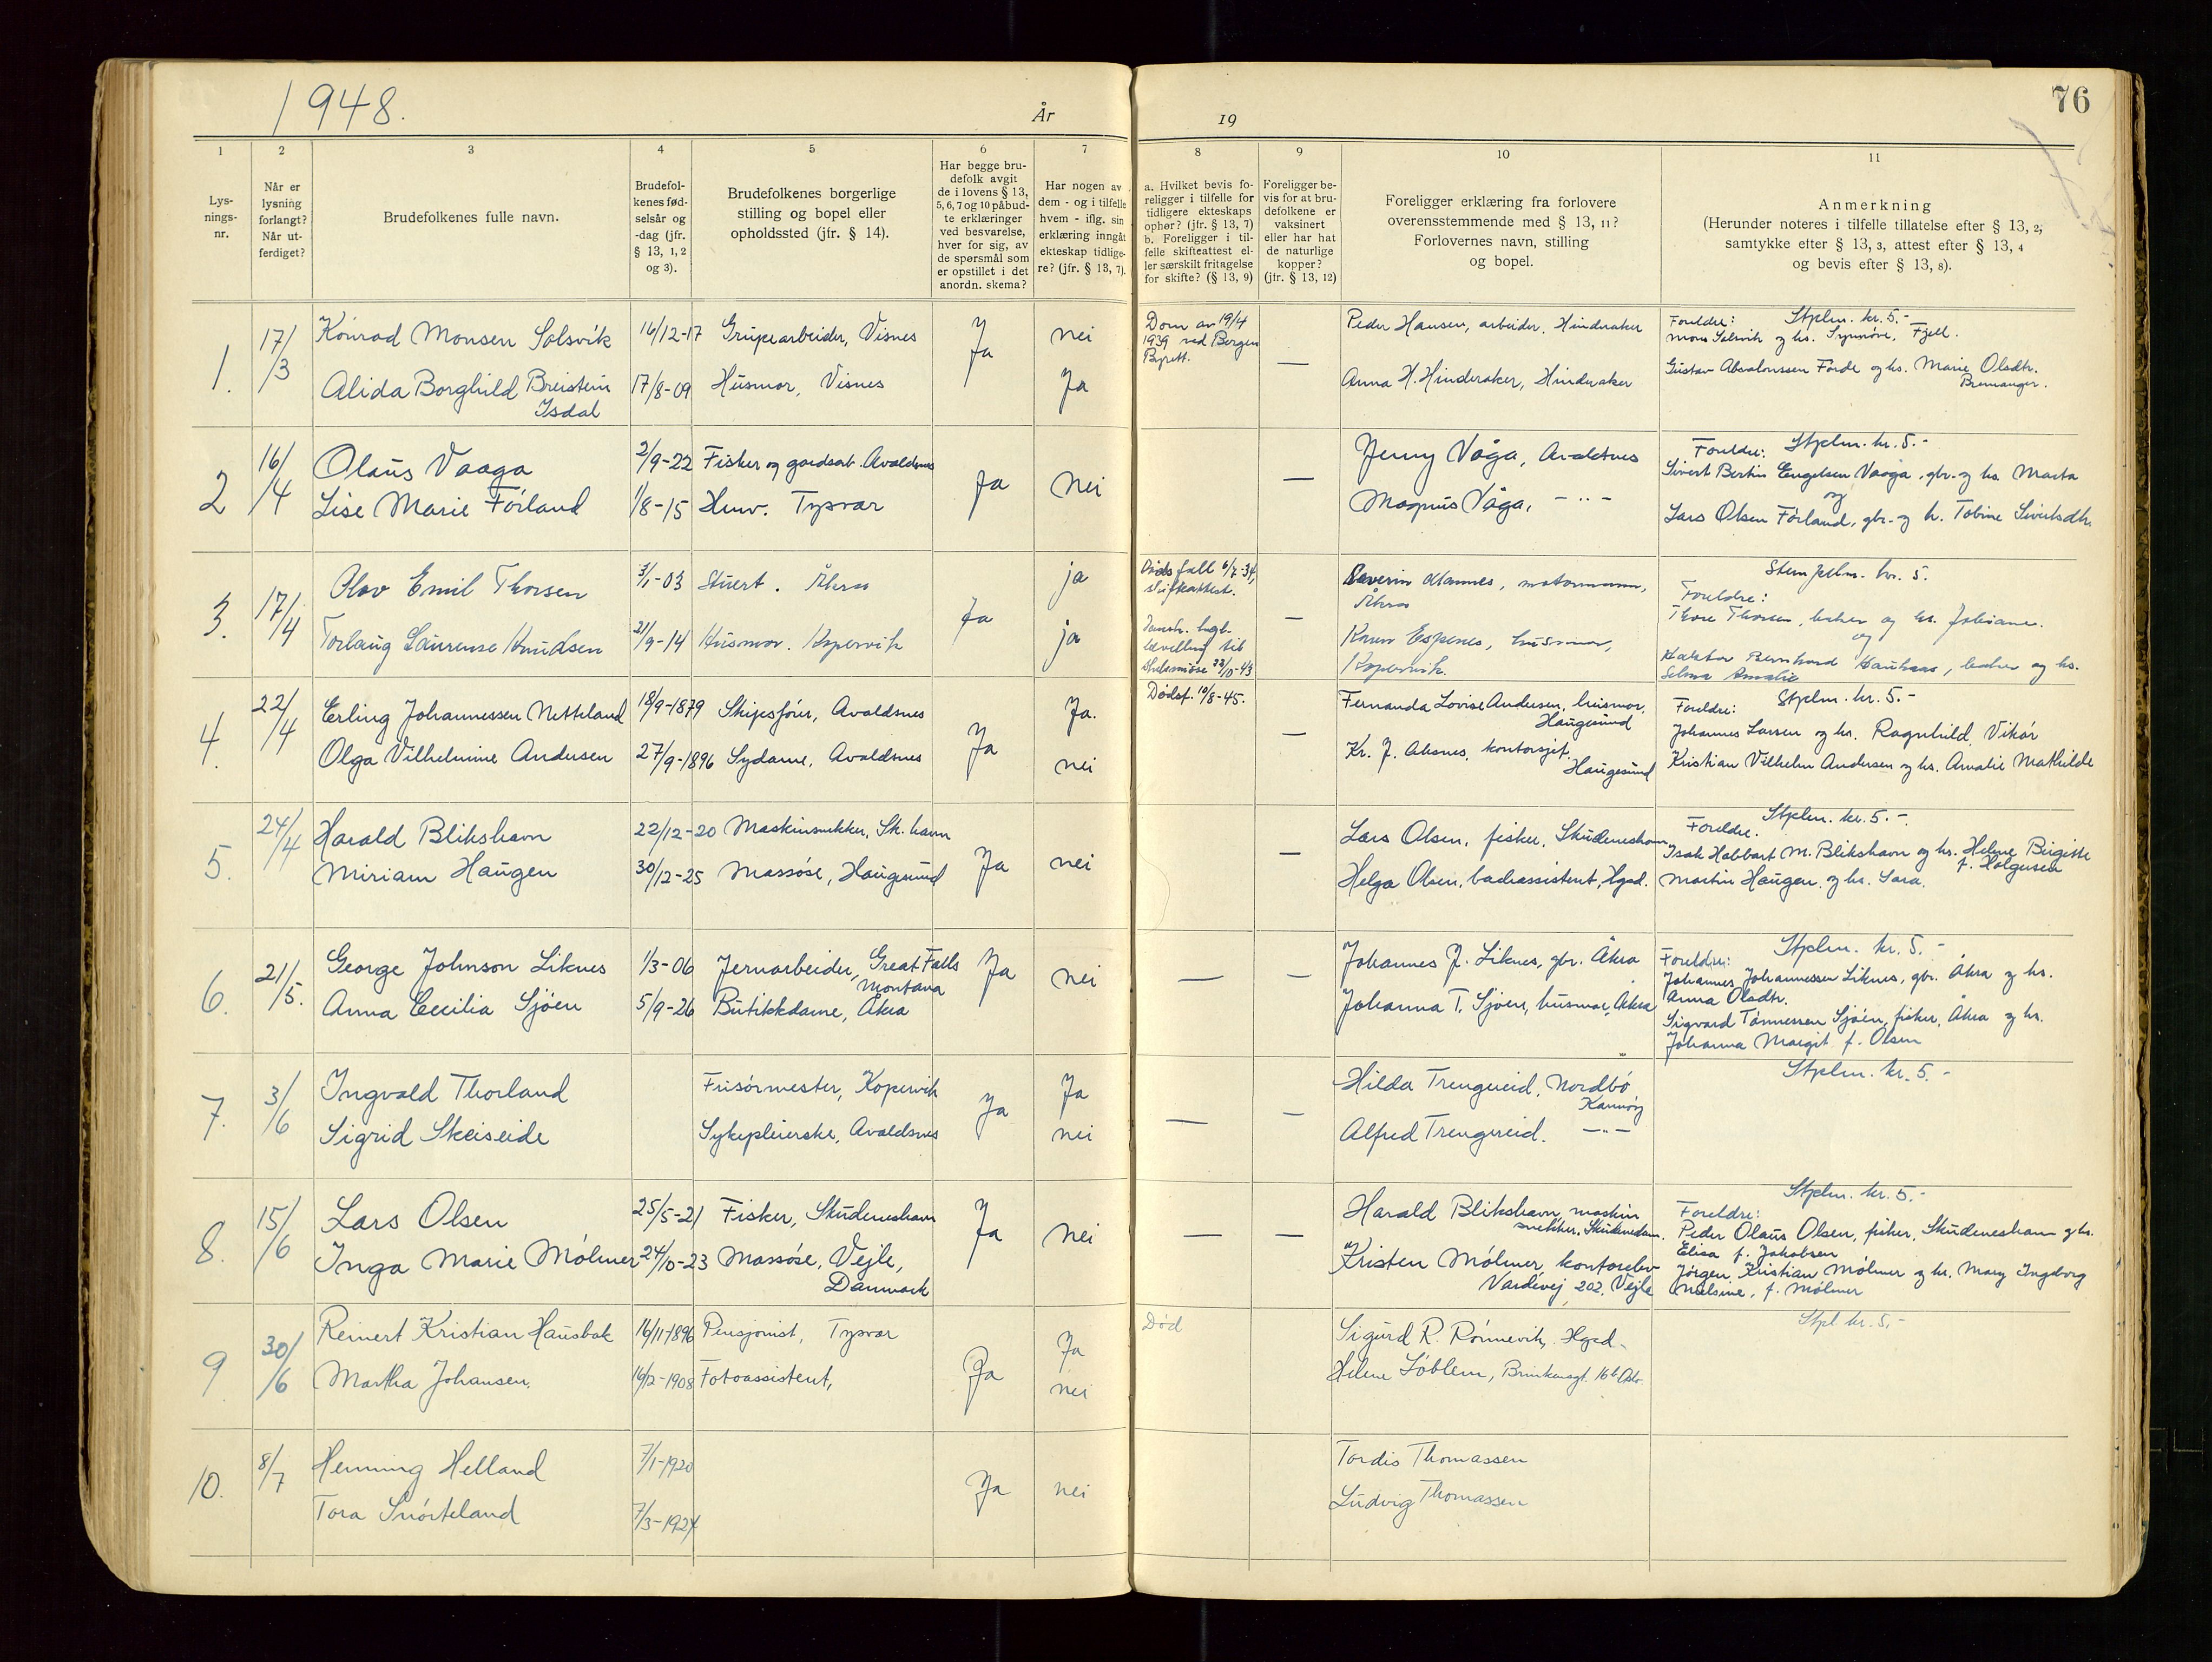 1948.
År
19
76
1
2
3
4
5
6
7
8
9
10
11
Lys-
nings-
nr.
Når er
lysning
forlangt?
Når ut-
ferdiget?
Brudefolkenes fulle navn.
Brudefol-
kenes fød-
selsår og
-dag (jfr.
§ 13, 1, 2
og 3).
Brudefolkenes borgerlige
stilling og bopel eller
opholdssted (jfr. § 14).
Har begge bru-
defolk avgit
de i lovens § 13,
5, 6, 7 og 10 påbud-
te erklæringer
ved besvarelse,
hver for sig, av
de spørsmål som
er opstillet i det
anordn. skema?
Har nogen av
dem - og i tilfelle
hvem - iflg. sin
erklæring inngåt
ekteskap tidlige-
re? (jfr. § 13, 7).
a. Hvilket bevis fo-
religger i tilfelle for
tidligere ekteskaps
ophør? (jfr. § 13, 7)
b. Foreligger i til-
felle skifteattest el-
ler særskilt fritagelse
for skifte? (§ 13, 9)
Foreligger be-
vis for at bru-
defolkene er
vaksinert
eller har hat
de naturlige
kopper?
(jfr. § 13, 12)
Foreligger erklæring fra forlovere
overensstemmende med § 13, 11?
Forlovernes navn, stilling
og bopel.
Anmerkning
(Herunder noteres i tilfelle tillatelse efter § 13, 2,
samtykke efter § 13, 3, attest efter § 13, 4
og bevis efter § 13, 8).
1.
17/3
Konrad Monsen Solsvik
16/12-17
Grupearbeider, Visnes
Ja
nei
Dom av 19/4
1939 ved Bergen
Byrett.
—
Peder Hansen, arbeider, Hinderaker
Foreldre: Stplm. kr. 5.-
Mons Solsvik og hs. Synnøve, Fjell.
Alida Borghild Breistein
Isdal
17/8-09
Husmor, Visnes
Ja
Anna H. Hinderaker, Hinderaker
Gustav Absalonssen Førde og hs. Marie Olsdtr.
Bremanger.
2
16/4
Olaus Vaaga
2/9-22
Fisker og gardsarb. Avaldsnes
Ja
nei
—
Jenny Våga, Avaldsnes
Foreldre: Stplm. kr. 5.-
Sivert Bertin Engelsen Vaaga, gbr. og hs. Marta
og
Lise Marie Førland
1/8-15
Husv. Tysvær
Magnus Våga, -"-
Lars Olsen Førland, gbr. og h. Tobine Sivertsdtr.
3.
17/4
Olav Emil Thorsen
3/1-03
Stuert. Åkra
Ja
ja
Dødsfall 6/7-34,
skifteattest.
—
Severin Mannes, motormann,
Åkra
Stempelm. kr. 5.
Foreldre:
Thore Thorsen, lærer og hs. Joliane.
og
Torlaug Laurense Knudsen
21/9-14
Husmor. Kopervik
ja
bevilling til
skilsmisse 22/10-43
Karen Espenes, husmor,
Kopervik.
Bernhard og hs.
Selma Amalie
4.
22/4
Erling Johannessen Netteland
18/9-1879
Skipsfører, Avaldsnes
Ja
Ja.
Dødsf. 10/8-45.
—
Fernanda Lovise Andersen, husmor,
Haugesund
Foreldre: Stplm. kr. 5.-
Johannes Larsen og hs. Ragnhild, Vikør
Olga Vilhelmine Andersen
27/9-1896
Sydame, Avaldsnes
nei
Kr. J. Aksnes, kontorsjef,
Haugesund
Kristian Vilhelm Andersen og hs. Amalie Mathilde
5.
24/4
Harald Blikshavn
22/12-20
Maskinsnekker, Sk. havn
Ja
nei
—
Lars Olsen, fisker, Skudeneshavn
Stplm. kr. 5.-
Foreldre.
Isak Habbart M. Blikshavn og hs. Helene Birgitte
f. Holgersen
Miriam Haugen
30/12-25
Massøse, Haugesund
Helga Olsen, badeassistent, Hgsd.
Martin Haugen og hs. Sara.
6.
21/5.
George Johnson Liknes
1/3-06
Jernarbeider, Great Falls
Montana
Ja
nei
—
—
Johannes J. Liknes, gbr. Åkra
Foreldre: Stplm. kr. 5.-
Johannes Johannessen Liknes, gbr. Åkra og hs.
Anna Olsdtr.
Anna Cecilia Sjøen
5/9-26
Butikkdame, Åkra
Johanna T. Sjøen, husmor, Åkra
Sigvard Tønnessen Sjøen, fisker, Åkra og hs.
Johanna Margit f. Olsen
7.
3/6
Ingvald Thorland
Frisørmester, Kopervik
Ja
Ja
—
—
Hilda Trengereid, Nordbø
Karmøy
Stplm. kr. 5.-
Sigrid Skeiseide
Sykepleierske, Avaldsnes
nei
Alfred Trengereid. -"-
8.
15/6
Lars Olsen
25/5-21
Fisker, Skudeneshavn
Ja
nei
—
—
Harald Blikshavn, maskin
snekker, Skudenesham.
Stplm. kr. 5.-
Foreldre:
Peder Olaus Olsen, fisker, Skudeneshavn og hs.
Elisa f. Jakobsen
Inga Marie Mølmer
24/10-23
Massøse, Vejle,
Danmark
Kristen Mølmer, kontorelev
Vardevej 202, Vejle
Jørgen Kristian Mølmer og hs. Mary Ingeborg
Nielsine, f. Mølmer
9
30/6
Reinert Kristian Hausbak
16/11-1896
Pensjonist, Tysvær
Ja
Ja
Død
Sigurd R. Rønnevik, Hgsd.
Stpl kr. 5.-
Martha Johansen.
16/2-1908
Fotoassistent,
nei
Helene Søblem, 16b Oslo
10.
8/7
Henning Helland
7/1-1920
Ja
nei
Tordis Thomassen
Tora Snørteland
7/3-1924
Ludvig Thomassen